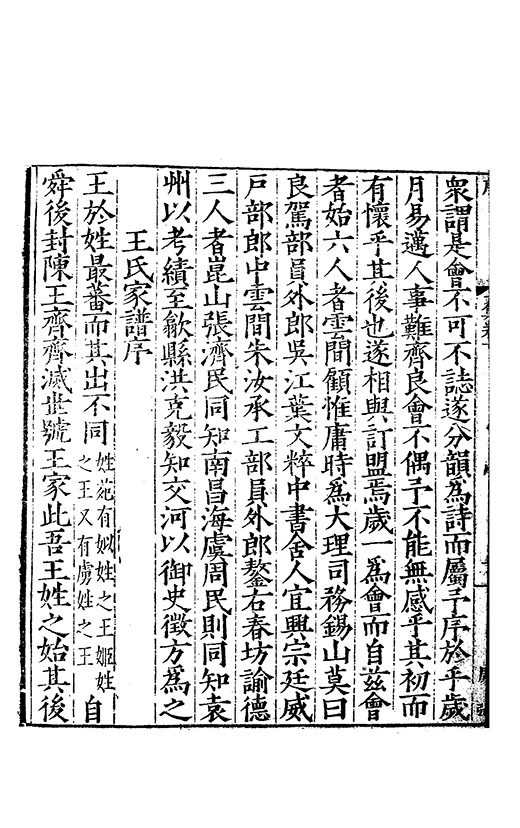 衆謂是會不可不誌遂分韻為詩而屬予序於乎歲
月易邁人事難齊良會不偶予不能無感乎其初而
有懷乎其後也遂相與訂盟焉歲一為會而自兹會
者始六人者雲間顧惟庸時為大理司務錫山莫曰
良駕部員外郎吳江葉文粹中書舍人宜興宗廷威
戶部郎中雲間朱汝承工部員外郎鏊右春坊諭德
三人者崑山張濟民同知南昌海虞周民則同知袁
州以考績至歙縣洪克毅知交河以御史徵方為之
王氏家譜序
王於姓最蕃而其出不同姓苑有姒姓之王姬姓之王又有虞姓之王自
舜後封陳王齊齊滅丗號王家此吾王姓之始其後